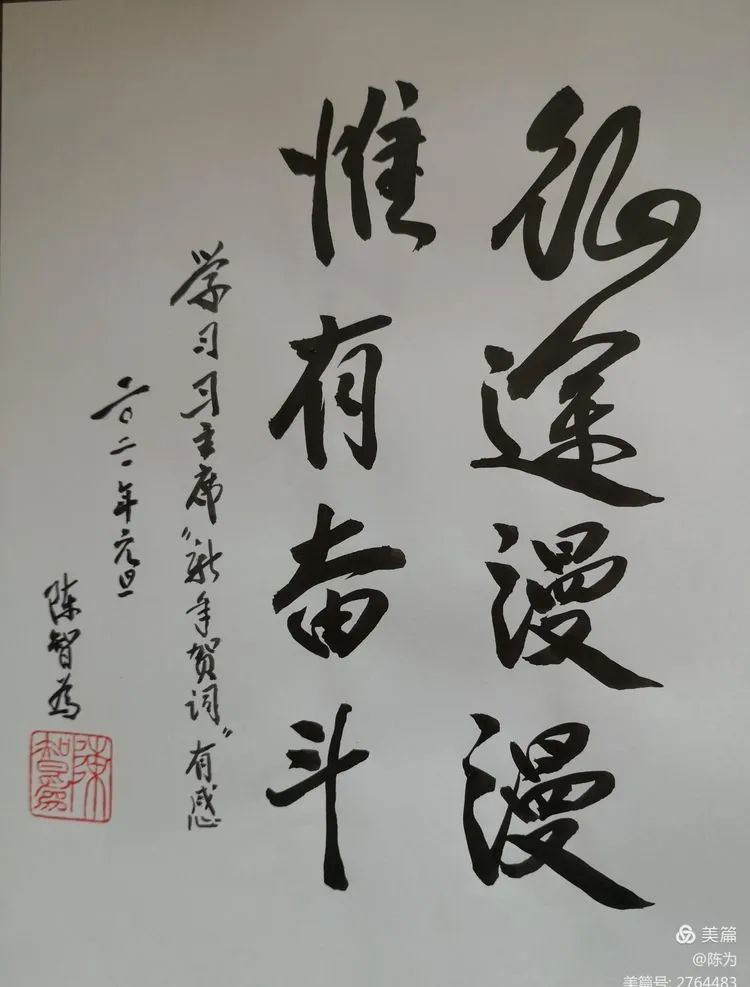 征途漫漫
惟有奋斗
学习习主席“新年贺词”有感
二〇二一年元旦
陈智为
陳智為
美篇
@陈为
美篇号: 2764483